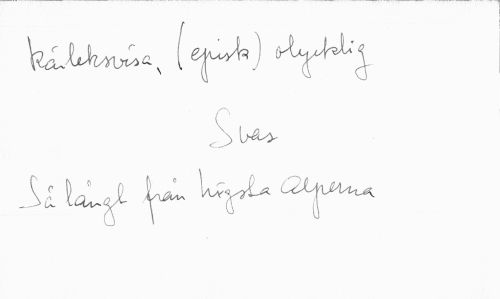 Kärleksvisa, (episk) olycklig
Svas
Så långt från högsta Alperna